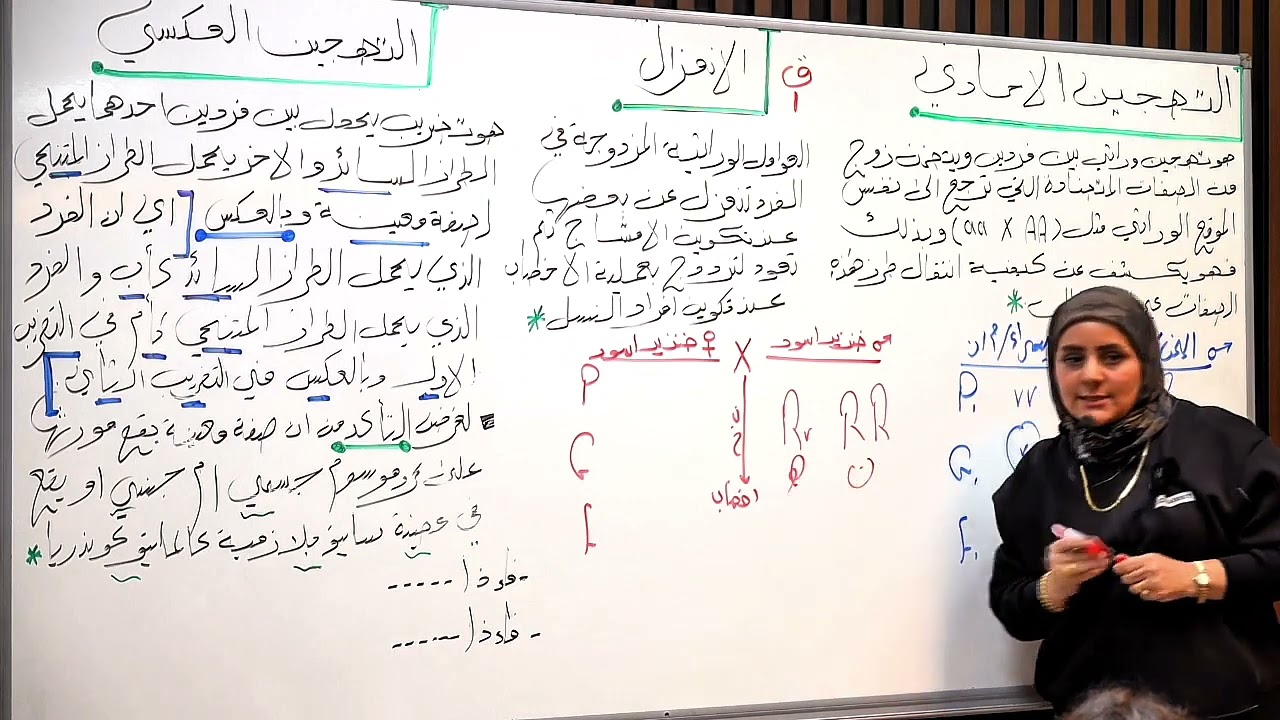 التهجين الاحادي
هو تهجين وراثي بين فردين ويتضمن زوج
من الصفات المتضادة التي ترجع الى نفس
الموقع الوراثي مثل (aa X AA) وبذلك
فهو يكشف عن كيفية انتقال طرز هذه
الصفات
P₁ vv
G₁
F₁
ق
١
الانعزال
العوامل الوراثية المزدوجة في
الفرد تنعزل عن بعضها
عند تكوين الامشاج ثم
تعود لتزدوج بعملية الاخصاب
عند تكوين افراد النسل *
♂ خنزير اسود X ♀ خنزير اسود
P RR Rv
G
اخصاب
F
التهجين العكسي
هو تضريب يحدث بين فردين احدهما يحمل
الطراز السائد والاخر يحمل الطراز المتنحي
لصفة معينة وبالعكس [اي ان الفرد
الذي يحمل الطراز السائد كأب والفرد
الذي يحمل الطراز المتنحي كأم في التضريب
الاول وبالعكس في التضريب الثاني]
لغرض التأكد من ان صفة معينة يقع مورثها
على كروموسوم جسمي ام جنسي او يقع
في عضية سايتوبلازمية كالمايتوكوندريا *
- فاذا -----
- فاذا -----